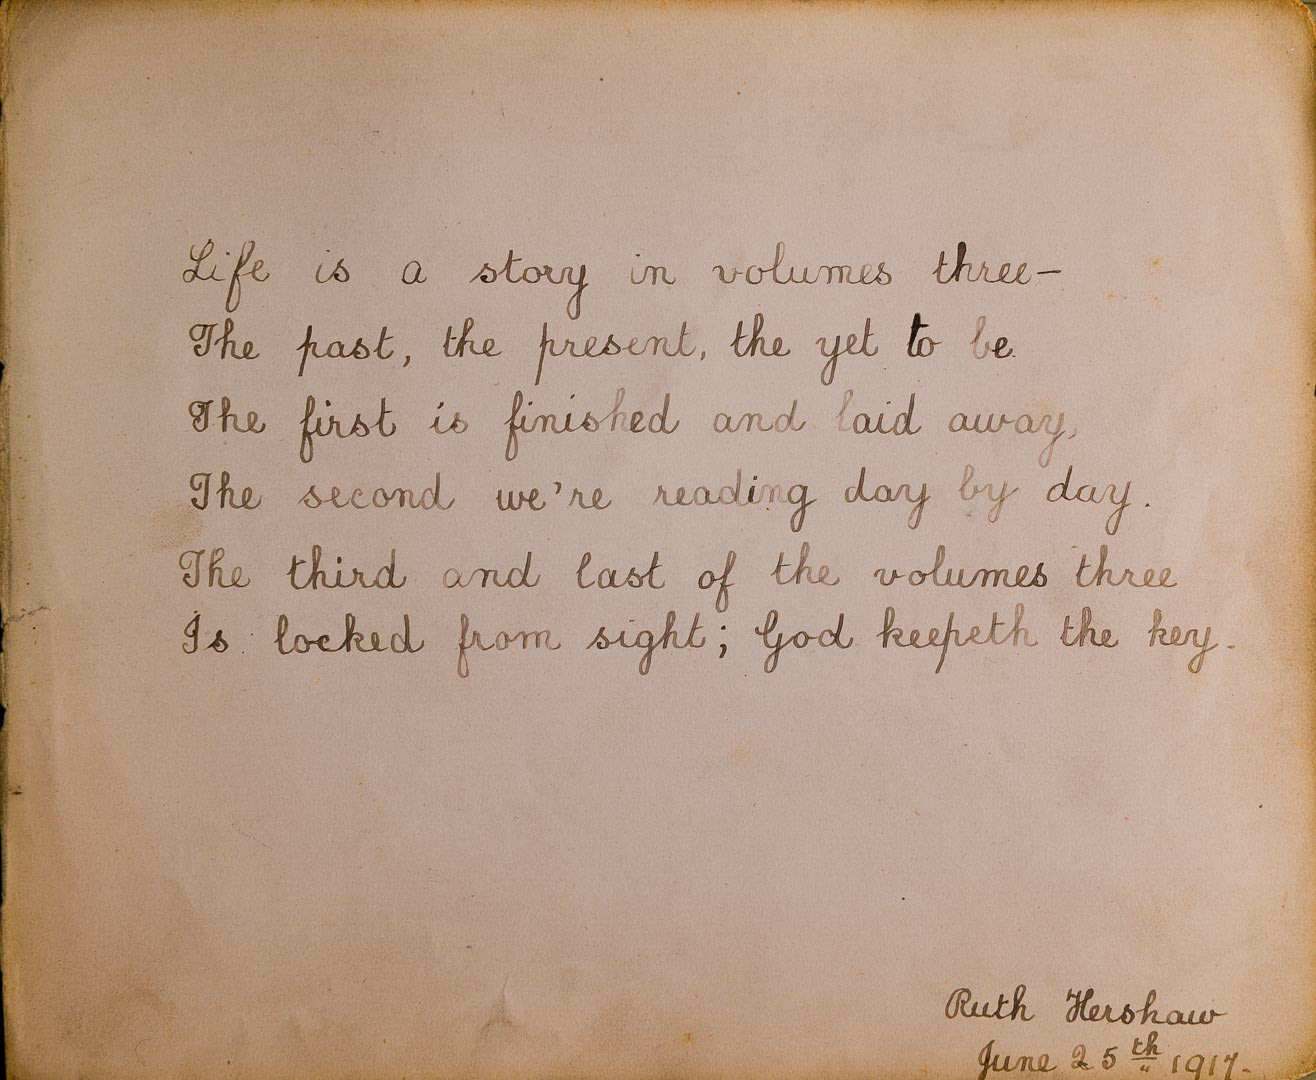 Life is a story in volumes three—
The past, the present, the yet to be
The first is finished and laid away,
The second we're reading day by day.
The third and last of the volumes three
Is locked from sight; God keepeth the key.
Ruth Hershaw
June 25th 1917.